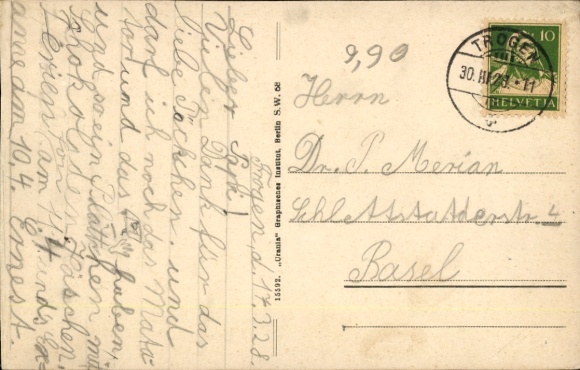 Trogen, d. 17.3.28.
Lieber Papi!
Vielen Dank für das
liebe Päckchen. und
darf ich noch das Mota-
tor und das haben,
und so ein Plättchen mit
Schokolade Täschen.
Ferien von 4
am 4 und En-
ame am 10.4 Ernest
15592. „Urania" Graphisches Institut, Berlin S.W. 68
9,90
TROGEN
30. III. 28. - 11
10
HELVETIA
Herrn
Dr. P. Merian
Schlettstatterstr 4
Basel